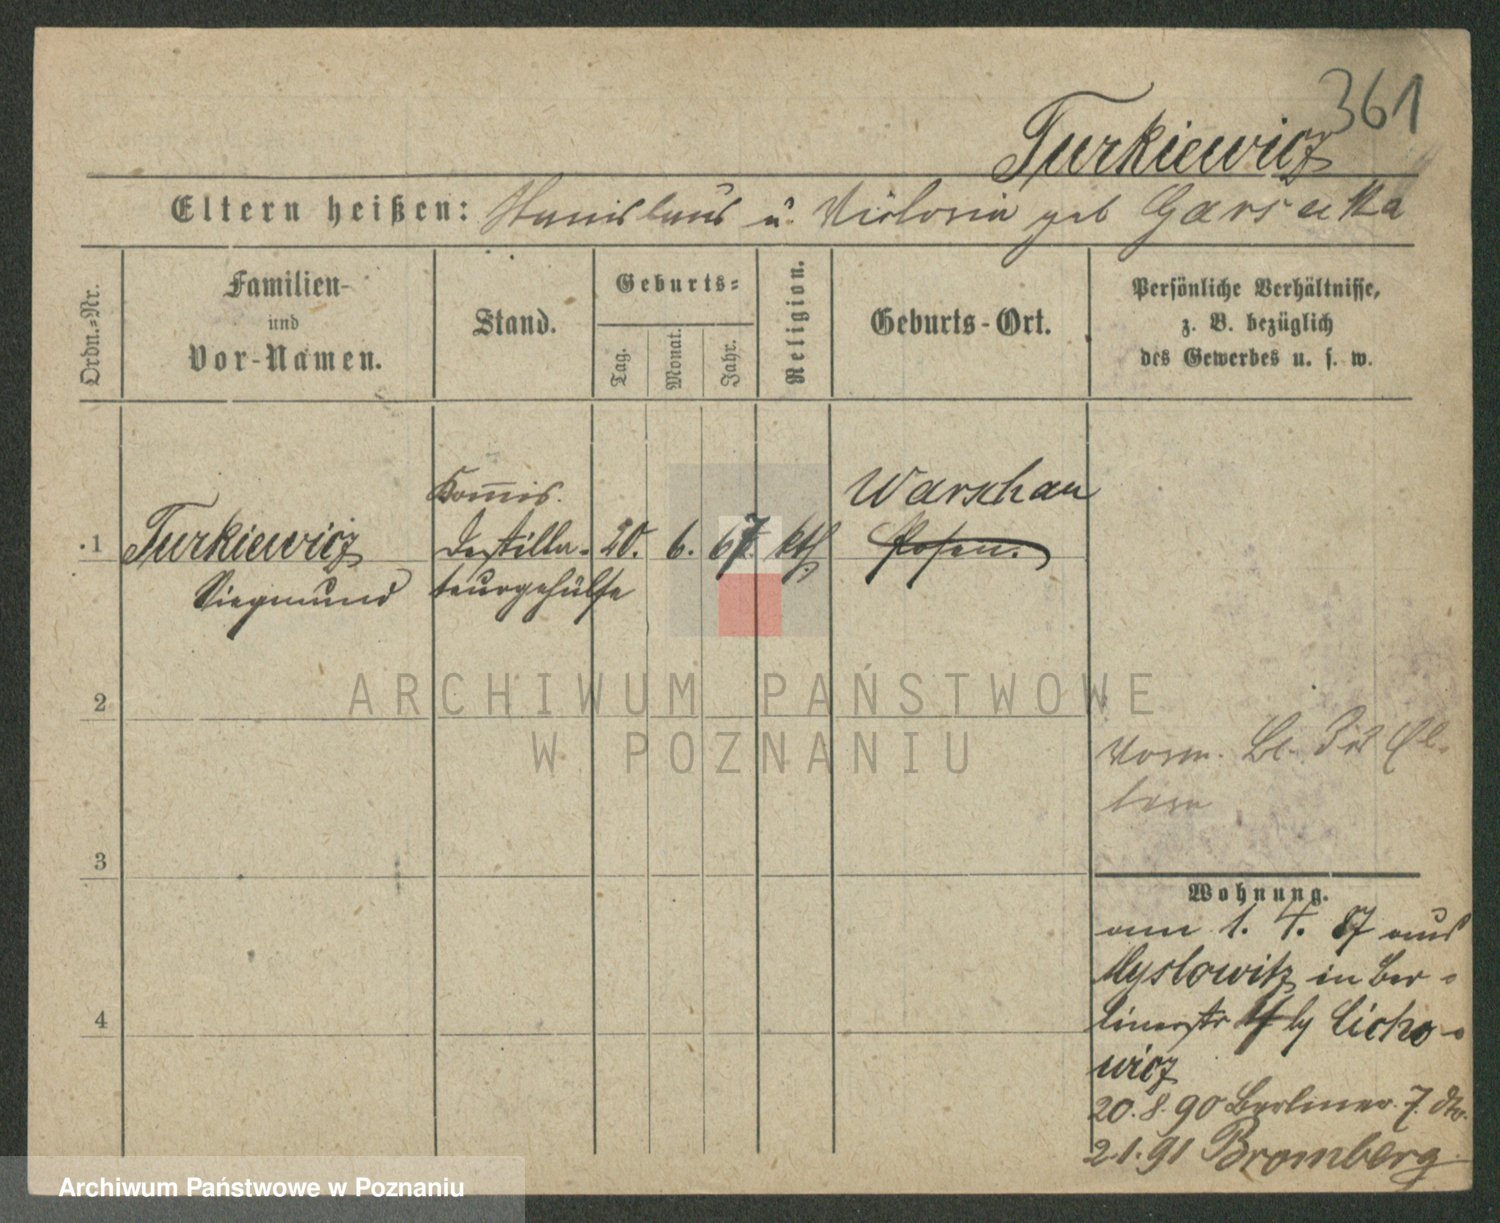 361
Turkiewicz
Eltern heißen: Stanislaus u. Victoria geb
Ordn.=Nr.
Familien-
und
Vor-Namen.
Stand.
Geburts=
Tag.
Monat.
Jahr.
Religion.
Geburts-Ort.
Persönliche Verhältnisse,
z. B. bezüglich
des Gewerbes u. s. w.
1
Turkiewicz
Siegmund
Kom̅is.
Destilla-
teurgehülfe
20.
6.
67
kth.
Warschau
Posen.
2
3
4
Vorm. Bl.
Wohnung.
am 1. 4. 87 aus
Myslowitz in Ber-
linerstr 4 by Cicho-
wicz
20.8.90 Berliner. 7.
2.1.91 Bromberg
ARCHIWUM PAŃSTWOWE
W POZNANIU
Archiwum Państwowe w Poznaniu